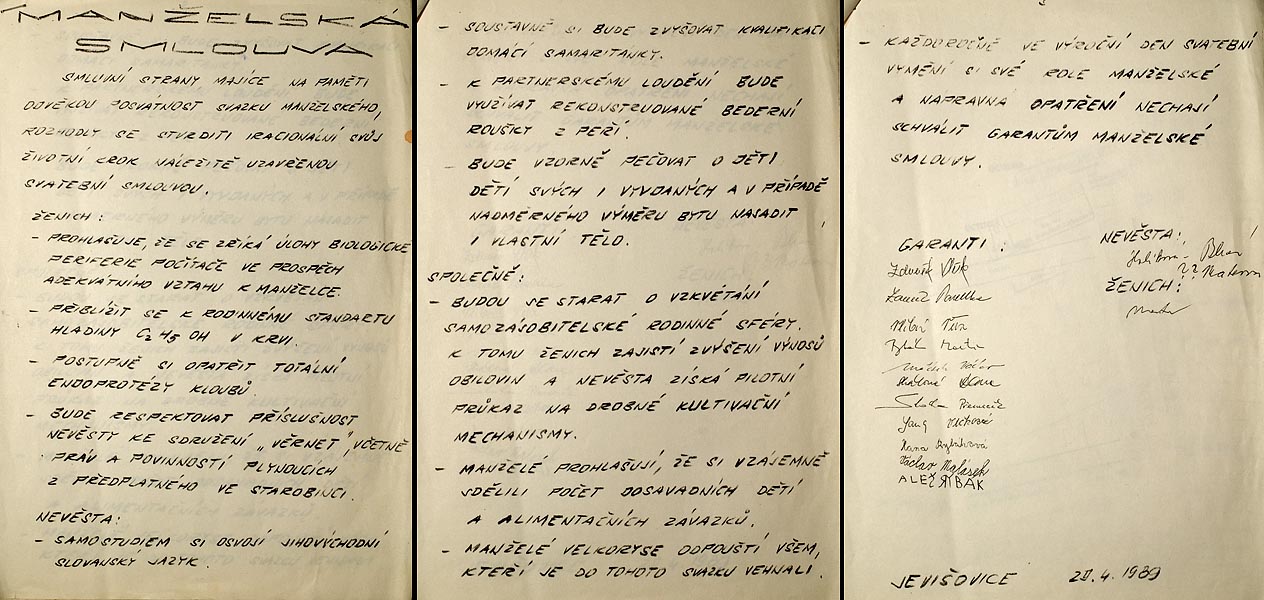 MANŽELSKÁ
SMLOUVA
SMLUVNÍ STRANY MAJÍCE NA PAMĚTI
ODVĚKOU POSVÁTNOST SVAZKU MANŽELSKÉHO,
ROZHODLY SE STVRDITI IRACIONÁLNÍ SVŮJ
ŽIVOTNÍ KROK NÁLEŽITĚ UZAVŘENOU
SVATEBNÍ SMLOUVOU.
ŽENICH:
- PROHLAŠUJE, ŽE SE ZŘÍKÁ ÚLOHY BIOLOGICKÉ
PERIFERIE POČÍTAČE VE PROSPĚCH
ADEKVÁTNÍHO VZTAHU K MANŽELCE.
- PŘIBLÍŽIT SE K RODINNÉMU STANDARTU
HLADINY C2H5OH V KRVI.
- POSTUPNĚ SI OPATŘIT TOTÁLNÍ
ENDOPROTÉZY KLOUBŮ
- BUDE RESPEKTOVAT PŘÍSLUŠNOST
NEVĚSTY KE SDRUŽENÍ „VĚRNET", VČETNĚ
PRÁV A POVINNOSTÍ PLYNOUCÍCH
Z PŘEDPLATNÉHO VE STAROBINCI.
NEVĚSTA:
- SAMOSTUDIEM SI OSVOJÍ JIHOVÝCHODNÍ
SLOVANSKÝ JAZYK.
- SOUSTAVNĚ SI BUDE ZVYŠOVAT KVALIFIKACI
DOMÁCÍ SAMARITÁNKY.
- K PARTNERSKÉMU LOUDĚNÍ BUDE
VYUŽÍVAT REKONSTRUOVANÉ BEDERNÍ
ROUŠKY Z PEŘÍ.
- BUDE VZORNĚ PEČOVAT O DĚTI
DĚTÍ SVÝCH I VYVDANÝCH A V PŘÍPADĚ
NADMĚRNÉHO VÝMĚRU BYTU NASADIT
I VLASTNÍ TĚLO.
SPOLEČNÉ:
- BUDOU SE STARAT O VZKVÉTÁNÍ
SAMOZÁSOBITELSKÉ RODINNÉ SFÉRY.
K TOMU ŽENICH ZAJISTÍ ZVÝŠENÍ VÝNOSŮ
OBILOVIN A NEVĚSTA ZÍSKÁ PILOTNÍ
PRŮKAZ NA DROBNÉ KULTIVAČNÍ
MECHANISMY.
- MANŽELÉ PROHLAŠUJÍ, ŽE SI VZÁJEMNĚ
SDĚLILI POČET DOSAVADNÍCH DĚTÍ
A ALIMENTAČNÍCH ZÁVAZKŮ.
- MANŽELÉ VELKORYSE ODPOUŠTÍ VŠEM,
KTEŘÍ JE DO TOHOTO SVAZKU VEHNALI.
- KAŽDOROČNĚ VE VÝROČNÍ DEN SVATEBNÍ
VYMĚNÍ SI SVÉ ROLE MANŽELSKÉ
A NAPRAVNA OPATŘENÍ NECHAJÍ
SCHVÁLIT GARANTŮM MANŽELSKÉ
SMLOUVY.
GARANTI:
Zdeněk
Václav Maňásek
ALEŠ RYBÁK
NEVĚSTA:
ŽENICH:
JEVIŠOVICE 4. 1989